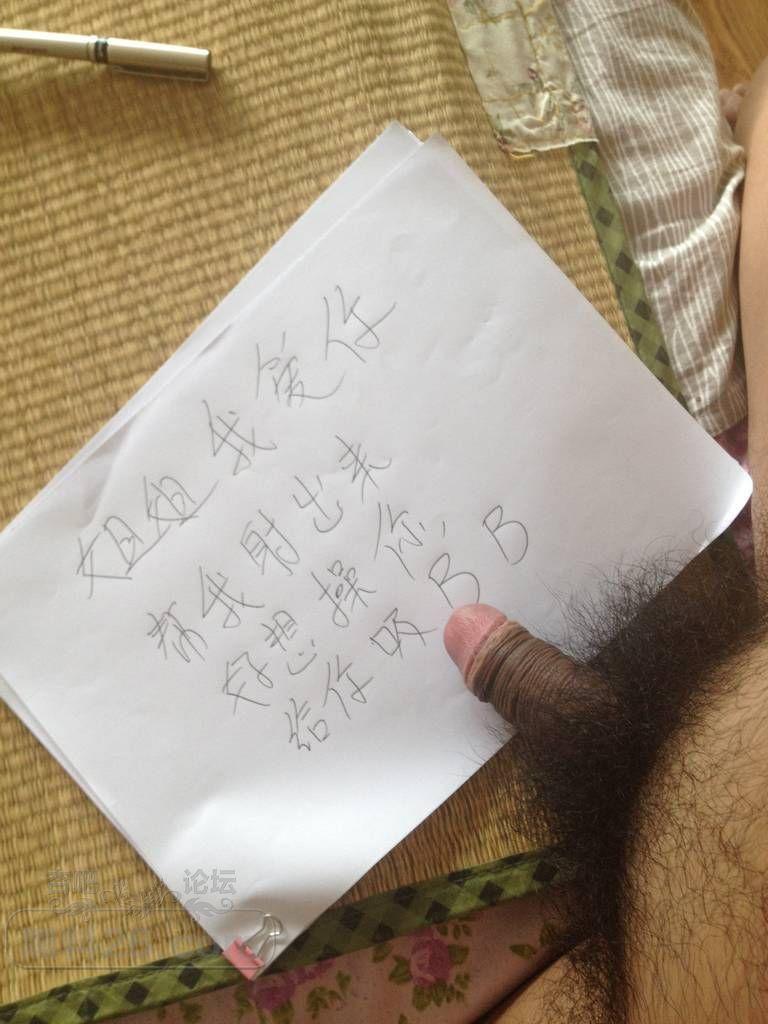 姐姐我爱你
帮我射出来
好想操你
给你吸BB
杏吧 论坛